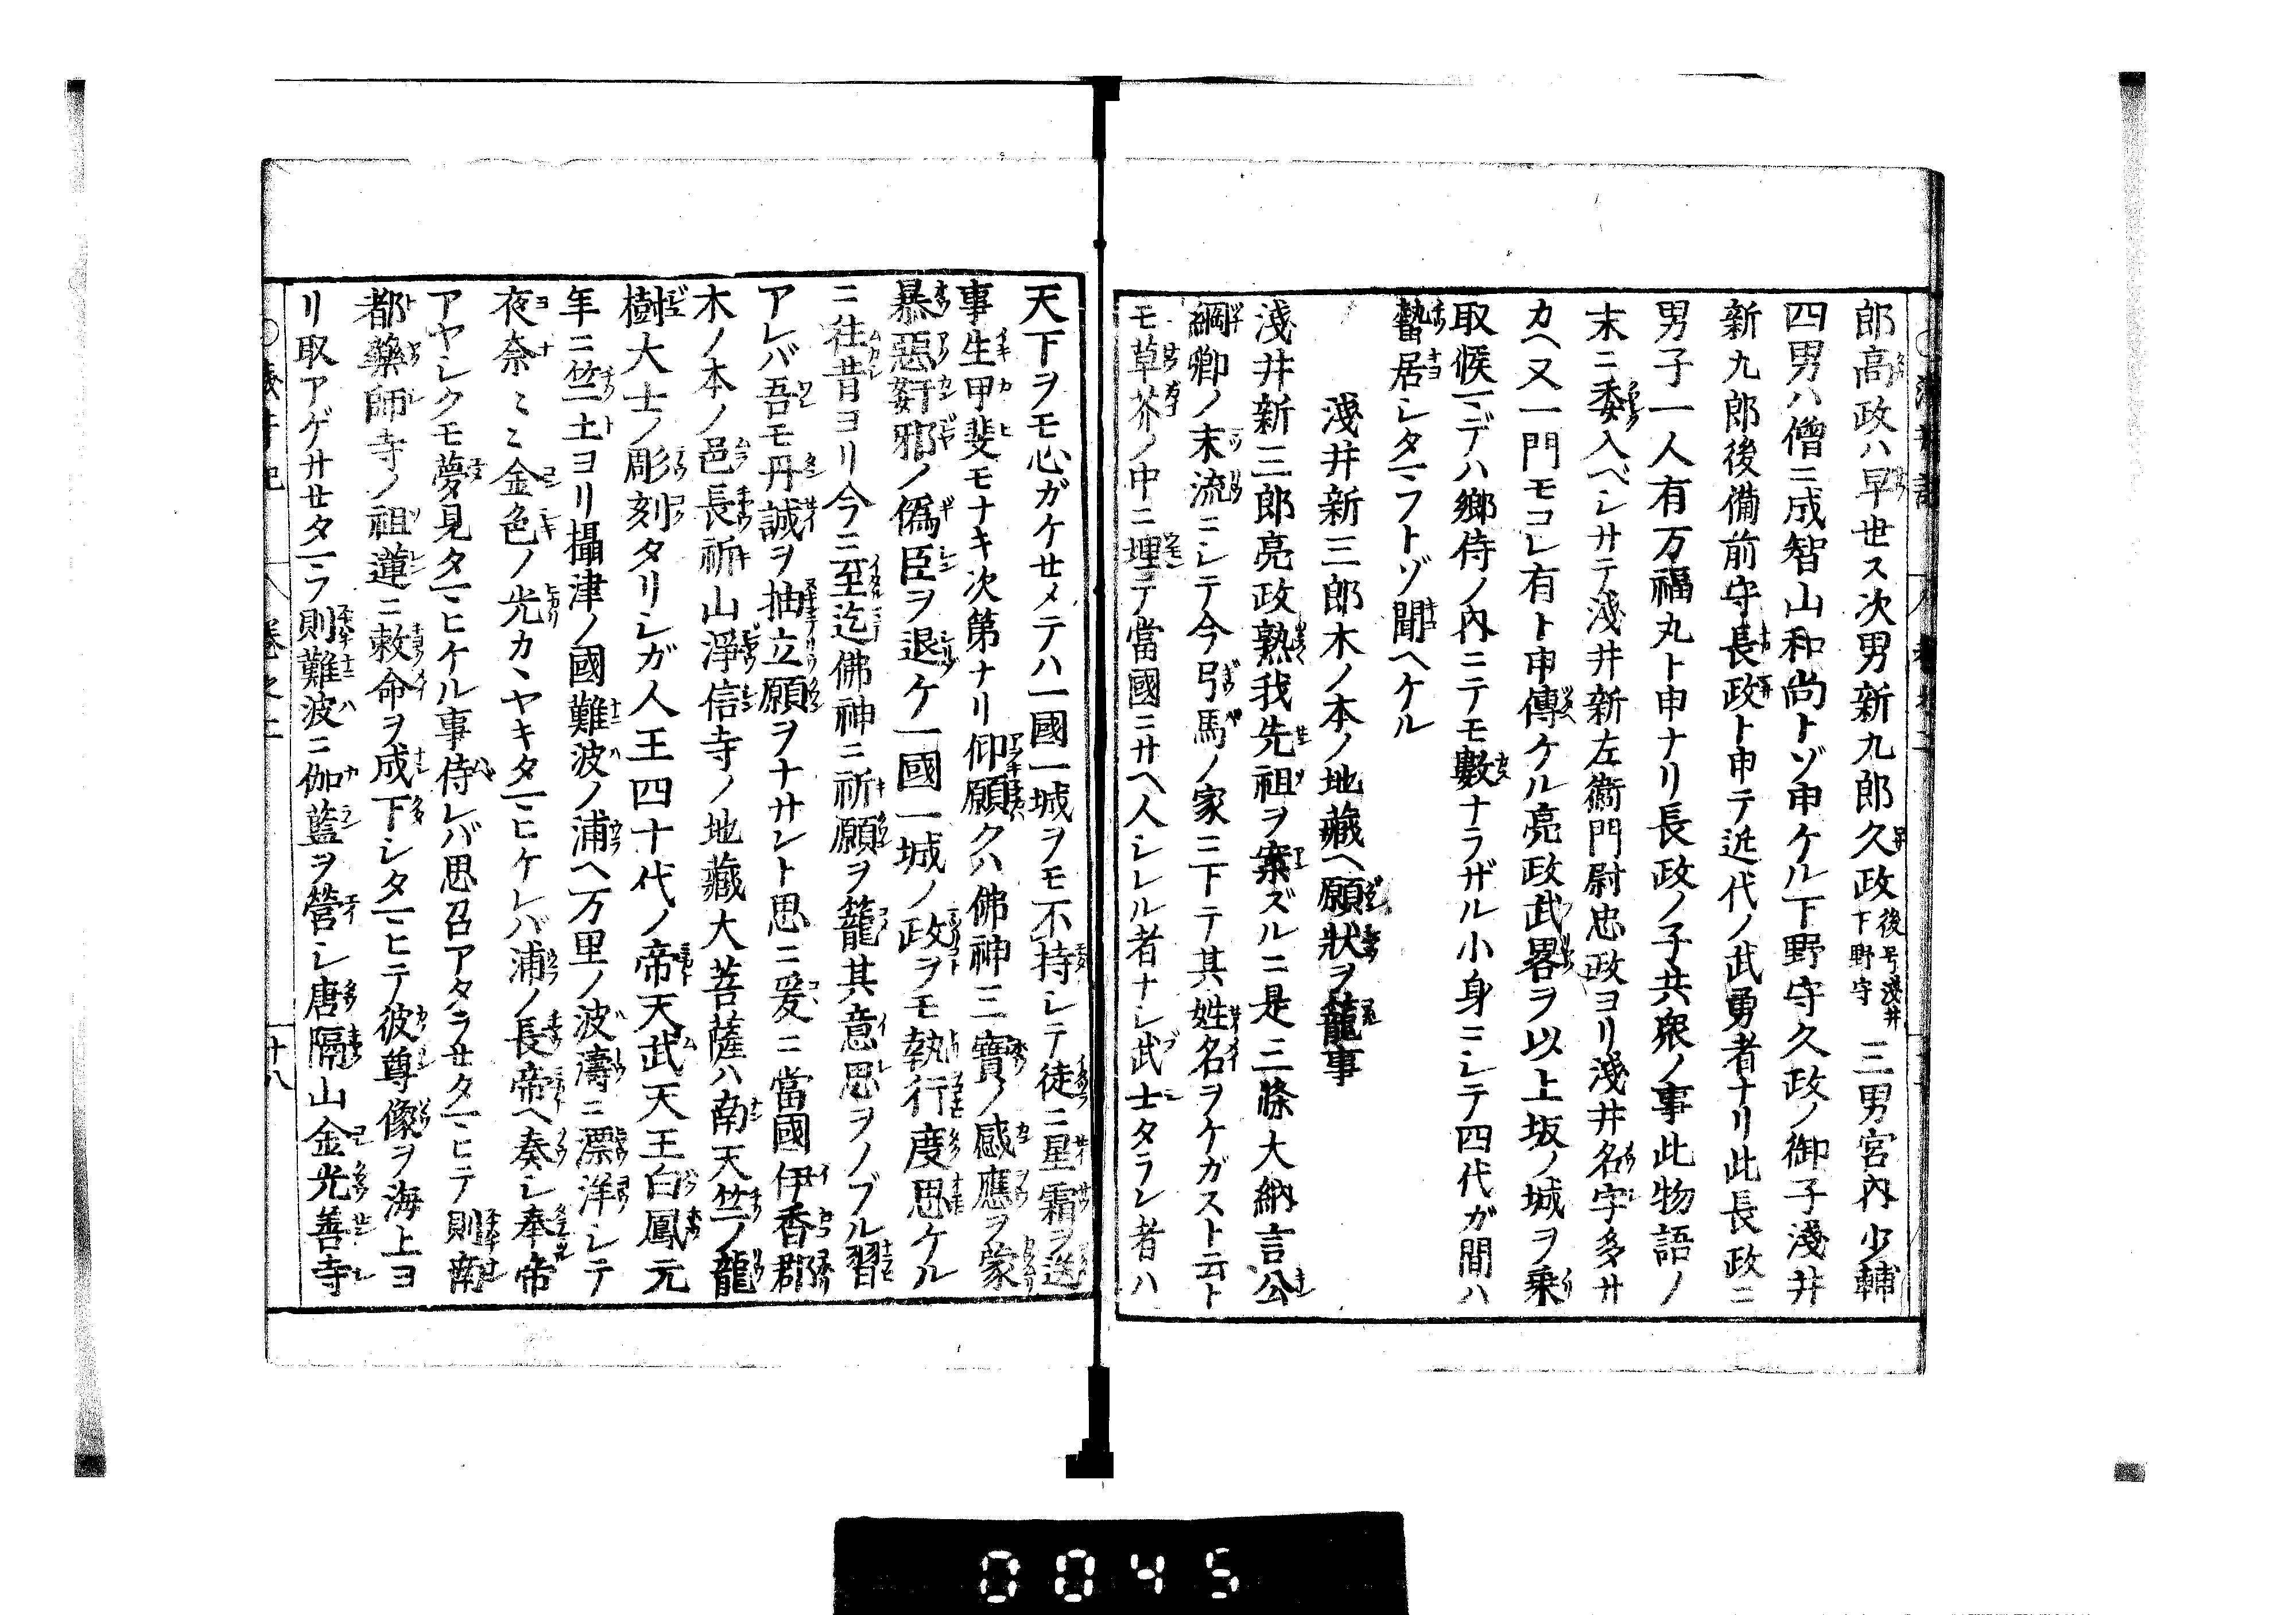 郎高政ハ早世ス次男新九郎久政後号浅井下野守三男宮内少輔
四男ハ僧ニ成智山和尚トゾ申ケル下野守久政ノ御子淺井
新九郎後備前守長政ト申テ近代ノ武勇者ナリ此長政ニ
男子一人有万福丸ト申ナリ長政ノ子共衆ノ事此物語ノ
末ニ委入ベシサテ淺井新左衛門尉忠政ヨリ淺井名字多サ
カヘ又一門モコレ有ト申傳ケル亮政武畧ヲ以上坂ノ城ヲ乗
取候マデハ郷侍ノ内ニテモ數ナラザル小身ニシテ四代ガ間ハ
蟄居シタマフトゾ聞ヘケル
淺井新三郎木ノ本ノ地藏ヘ願狀ヲ籠事
淺井新三郎亮政熟我先祖ヲ案ズルニ是三條大納言公
綱卿ノ末流ニシテ今弓馬ノ家ニ下テ其姓名ヲケガスト云ト
モ草芥ノ中ニ埋テ當國ニサヘ人シレル者ナシ武士タラン者ハ
天下ヲモ心ガケせメテハ一國一城ヲモ不持シテ徒ニ星霜ヲ送
事生甲斐モナキ次第ナリ仰願クハ佛神三寶ノ感應ヲ蒙
暴惡姧邪ノ僞臣ヲ退ケ一國一城ノ政ヲモ執行度思ケル
ニ往昔ヨリ今ニ至迄佛神ニ祈願ヲ籠其意思ヲノブル習
アレバ吾モ丹誠ヲ抽立願ヲナサント思ニ爰ニ當國伊香郡
木ノ本ノ邑長祈山淨信寺ノ地藏大菩薩ハ南天竺ノ龍
樹大士ノ彫刻タリシガ人王四十代ノ帝天武天王白鳳元
年ニ竺土ヨリ攝津ノ國難波ノ浦ヘ万里ノ波濤ニ漂洋シテ
夜奈ミミ金色ノ光カヽヤキタマヒケレバ浦ノ長帝ヘ奏シ奉帝
アヤシクモ夢見タマヒケル事侍レバ思召アタラせタマヒテ則南
都藥師寺ノ祖蓮ニ敕命ヲ成下シタマヒテ彼尊像ヲ海上ヨ
リ取アゲサせタマフ則難波ニ伽藍ヲ營シ唐隔山金光善寺
十八
0045